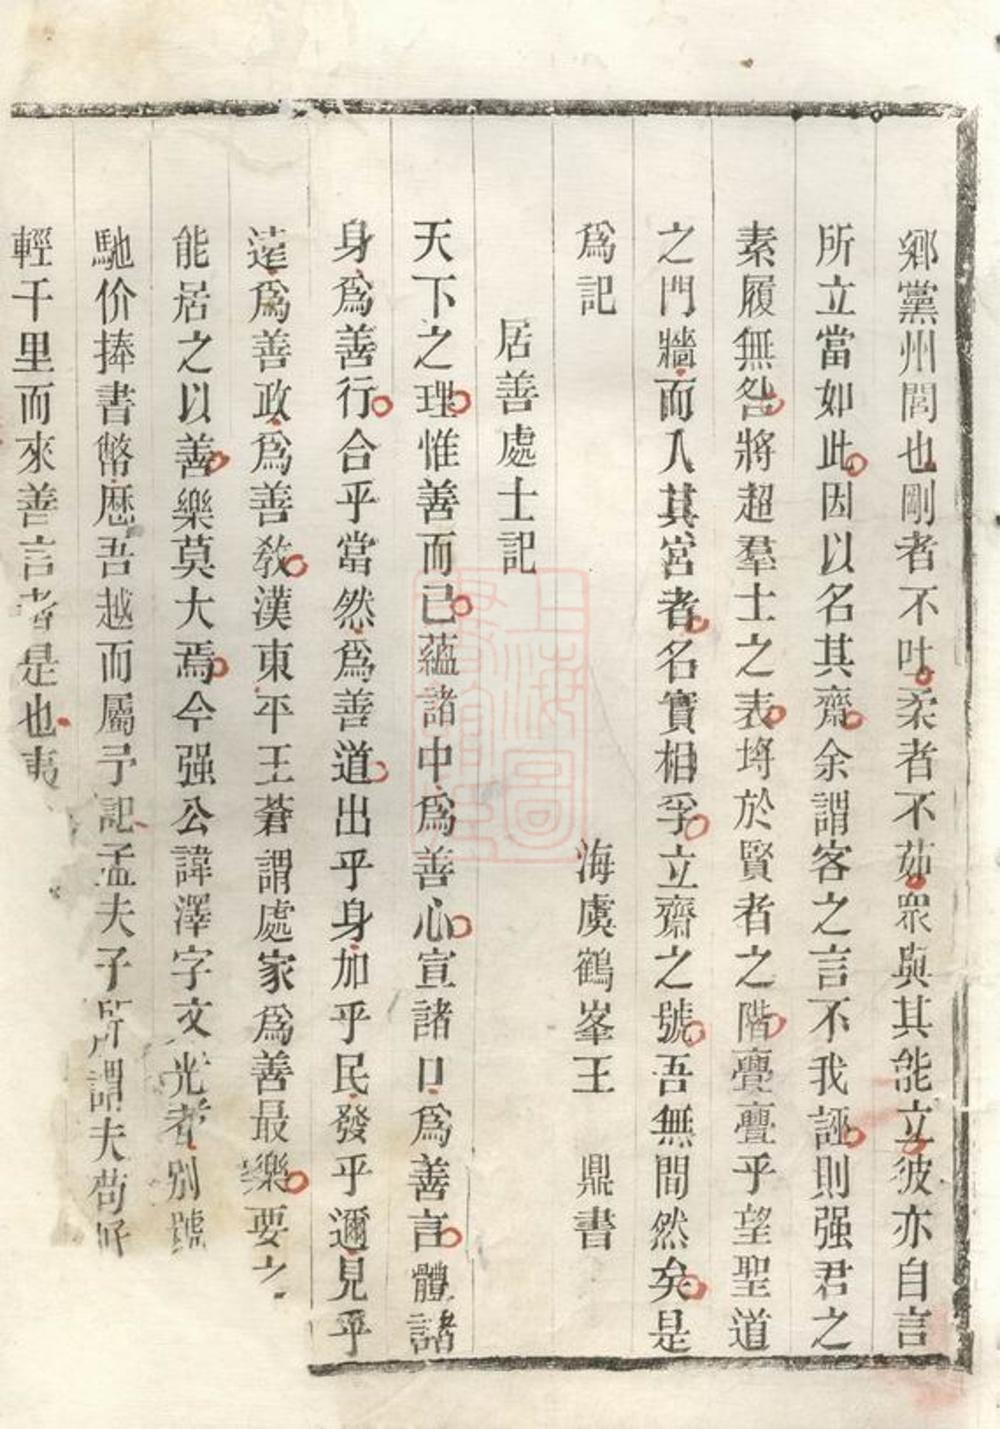 鄉黨州閭也剛者不吐柔者不茹衆與其能立彼亦自言
所立當如此因以名其齋余謂客之言不我誣則强君之
素履無咎將超羣士之表埓於賢者之階亹亹乎望聖道
之門牆而入其宮者名實相孚立齋之號吾無間然矣是
爲記 海虞鶴峯王 鼎書
居善處士記
天下之理惟善而已蘊諸中爲善心宣諸口爲善言體諸
身爲善行合乎當然爲善道出乎身加乎民發乎邇見乎
遠爲善政爲善教漢東平王蒼謂處家爲善最樂要之
能居之以善樂莫大焉今强公諱澤字文光者別號
馳价捧書幣歷吾越而屬予記孟夫子所謂夫苟好
輕千里而來善言者是也夷
上海圖書館藏